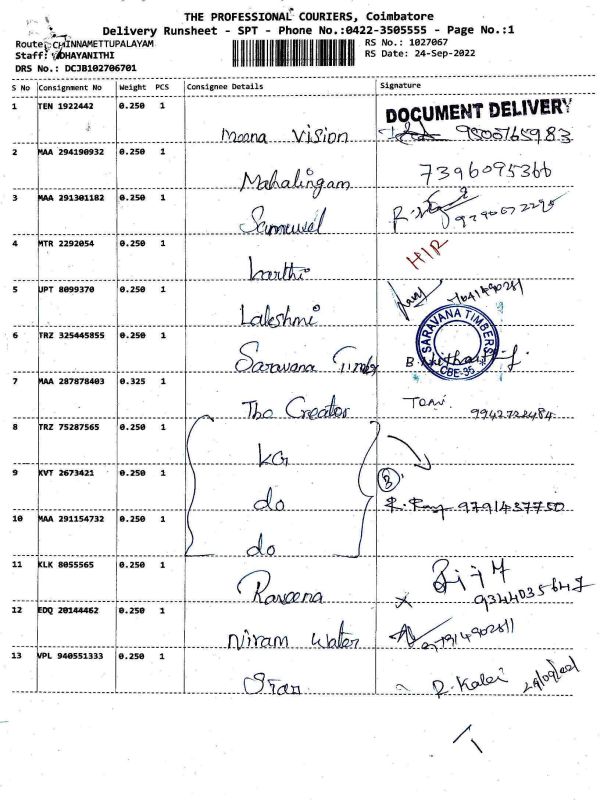 THE PROFESSIONAL COURIERS, Coimbatore
Delivery Runsheet - SPT - Phone No.:0422-3505555 - Page No.:1
Route: CHINNAMETTUPALAYAM
RS No.: 1027067
Staff: UDHAYANITHI
RS Date: 24-Sep-2022
DRS No.: DCJB102706701
S No Consignment No Weight PCS Consignee Details Signature
1 TEN 1922442 0.250 1
DOCUMENT DELIVERY
Meena Vision 9500765983
2 MAA 294190932 0.250 1
Mahalingam 7396095366
3 MAA 291301182 0.250 1
Sammuvel 9790672295
4 MTR 2292054 0.250 1
karthi HIR
5 UPT 8099370 0.250 1
Lakshmi
6 TRZ 325445855 0.250 1
Saravana Timber
SARAVANA TIMBERS
CBE-35
7 MAA 287878403 0.325 1
The Creator Tomi 9942722484
8 TRZ 75287565 0.250 1
KG
9 KVT 2673421 0.250 1
3
do R. Ray 9791437750
10 MAA 291154732 0.250 1
do
11 KLK 8055565 0.250 1
Raseena
12 EDQ 20144462 0.250 1
Niram Water
13 VPL 940551333 0.250 1
R. Kalai